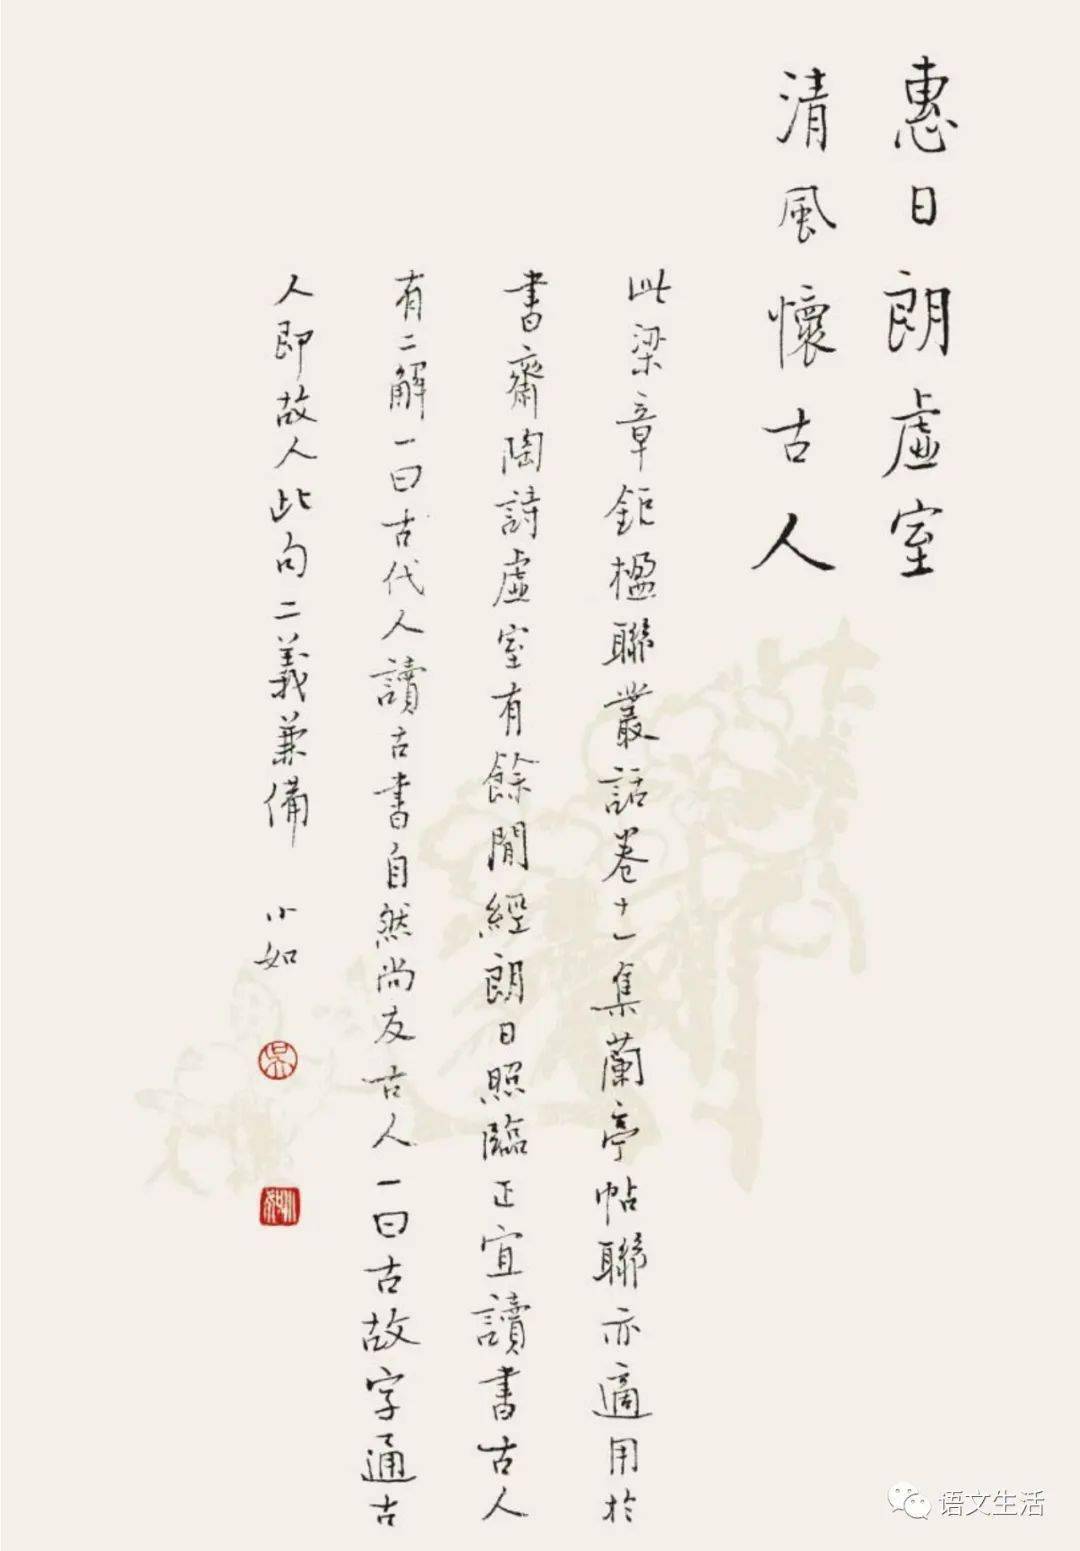 惠日朗虛室
清風懷古人
此梁章鉅楹聯叢話卷十一集蘭亭帖聯亦適用於
書齋陶詩虛室有餘閒經朗日照臨正宜讀書古人
有二解一曰古代人讀古書自然尚友古人一曰古故字通古
人即故人此句二義兼備
小如
吳
小如
语文生活